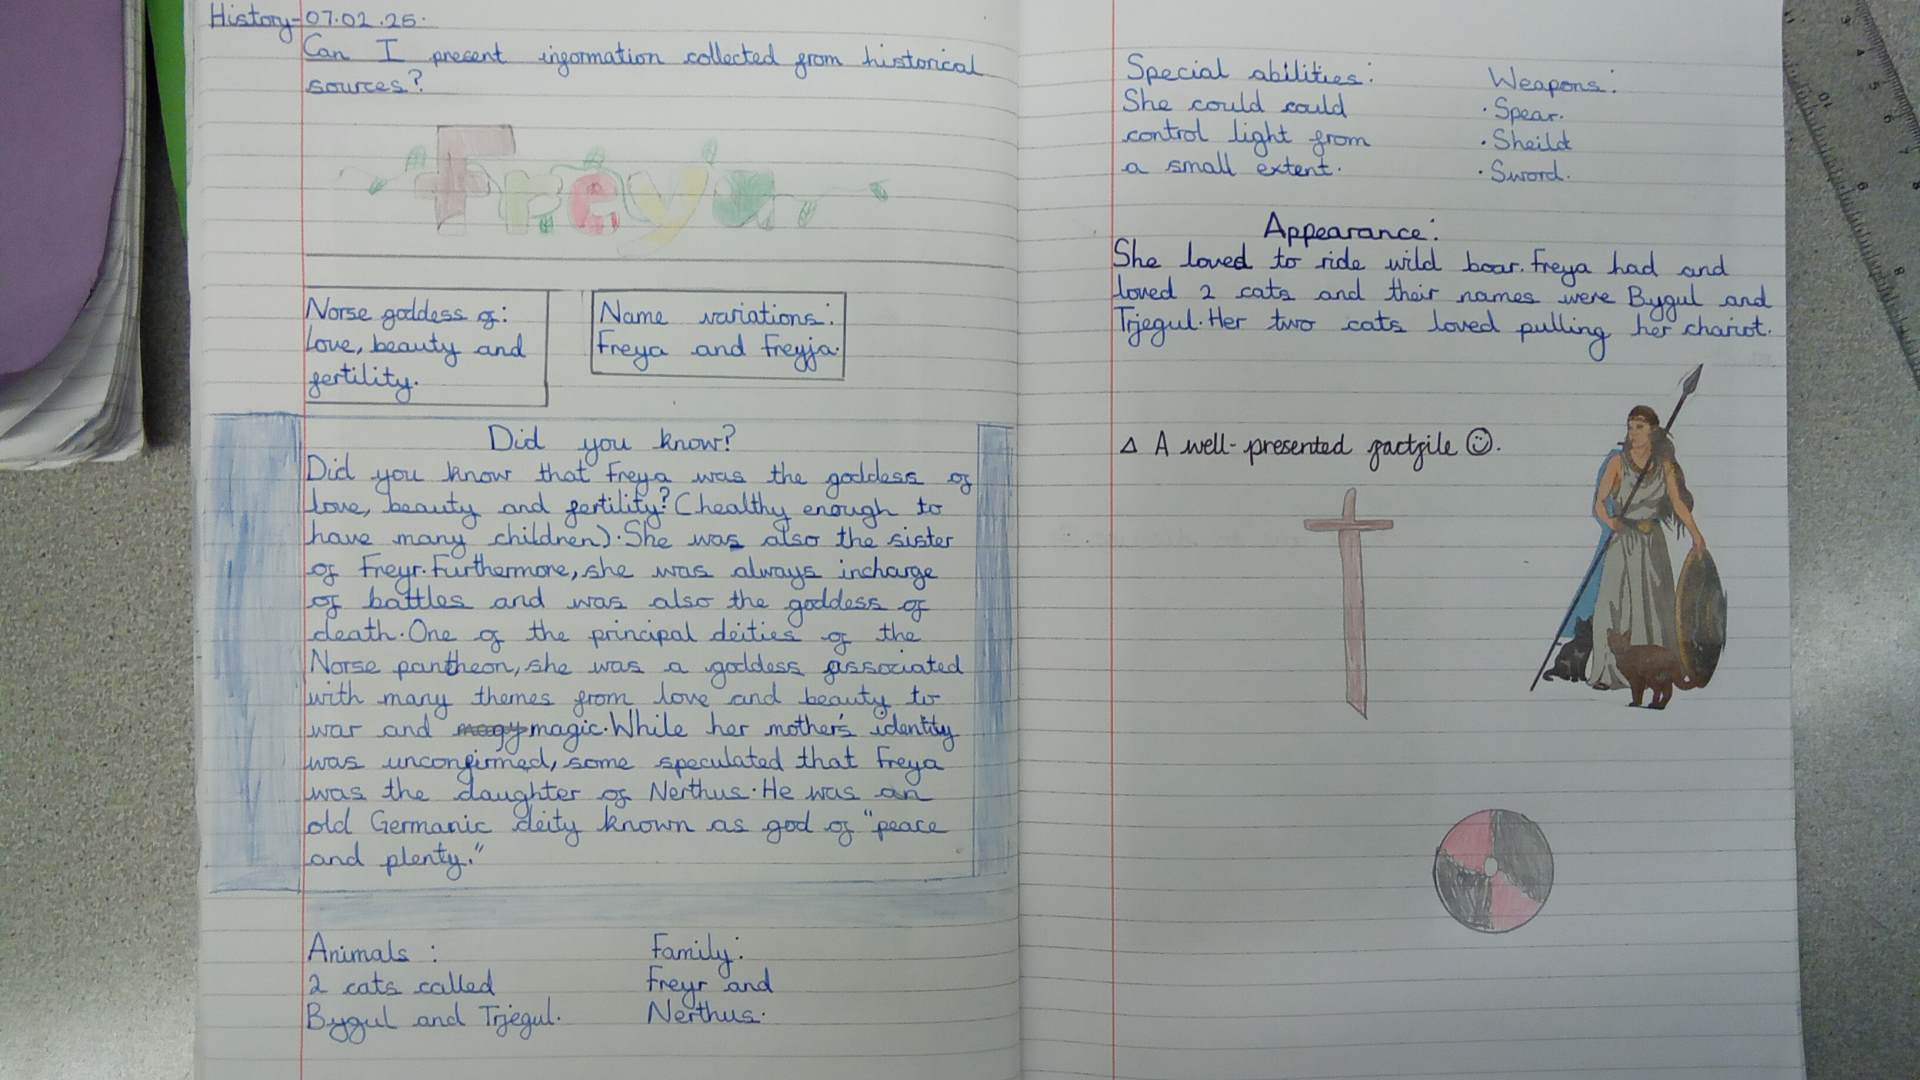 History-07.02.25.
Can I present information collected from historical
sources?
Freya
Norse goddess of:
Love, beauty and
fertility.
Name variations:
Freya and Freyja.
Did you know?
Did you know that Freya was the goddess of
love, beauty and fertility? (healthy enough to
have many children). She was also the sister
of Freyr. Furthermore, she was always incharge
of battles and was also the goddess of
death. One of the principal deities of the
Norse pantheon, she was a goddess associated
with many themes from love and beauty to
war and magic. While her mother's identity
was unconfirmed, some speculated that Freya
was the daughter of Nerthus. He was an
old Germanic deity known as god of "peace
and plenty."
Animals :
2 cats called
Bygul and Trjegul.
Family:
Freyr and
Nerthus.
Special abilities:
She could could
control light from
a small extent.
Weapons:
· Spear.
· Sheild
· Sword.
Appearance:
She loved to ride wild boar. Freya had and
loved 2 cats and their names were Bygul and
Trjegul. Her two cats loved pulling her chariot.
Δ A well-presented factfile ☺.